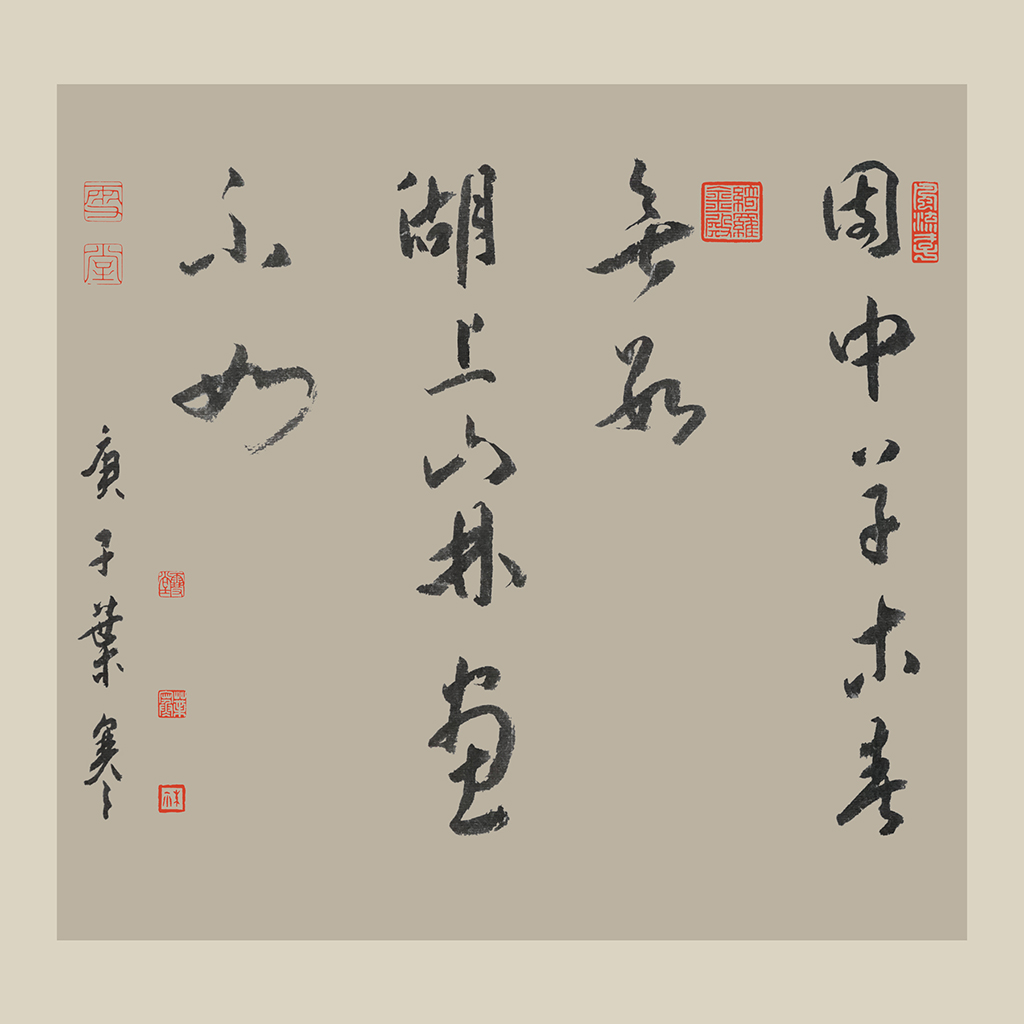 園中草木春
無數
湖上山林畫
不如
庚子葉寒
雪堂
雪堂